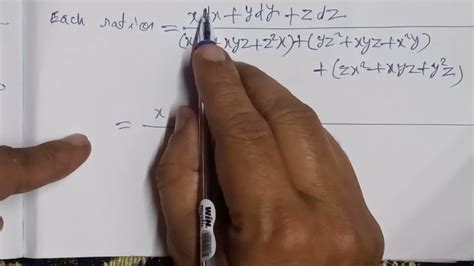 Each ration = x dx + y dy + z dz
(x + xyz + z²x) + (yz² + xyz + x²y)
+ (zx² + xyz + y²z)
= x
WIN